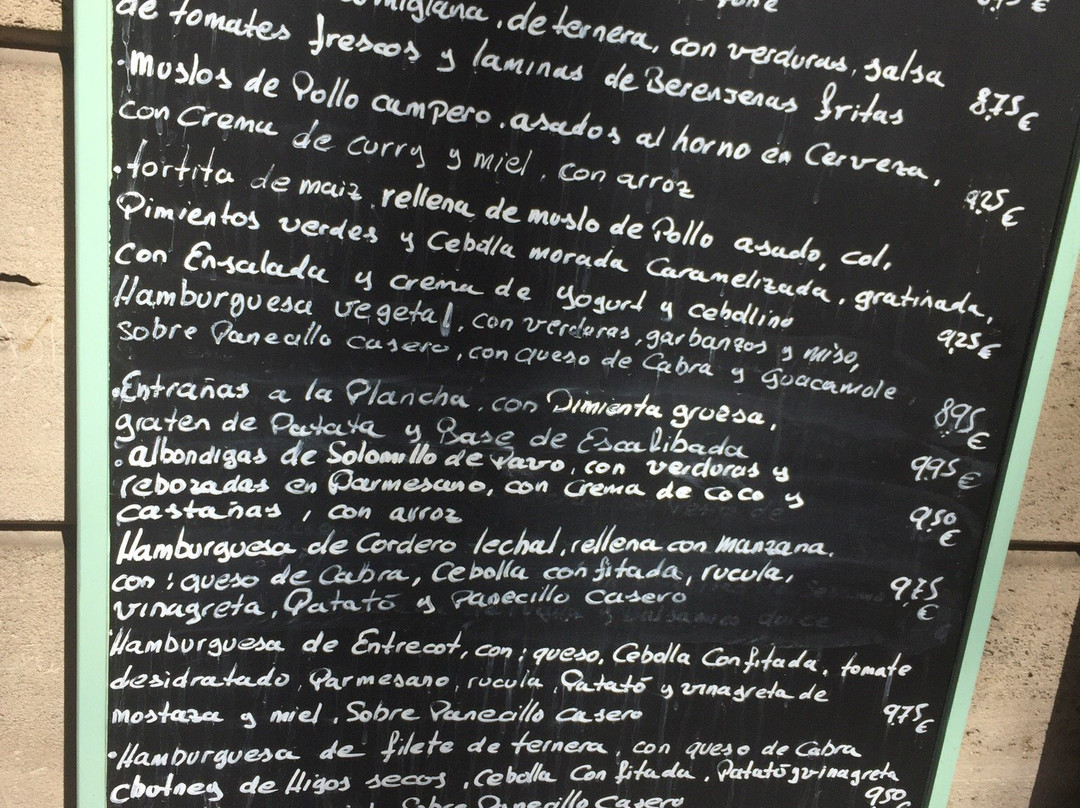 de ternera, con verduras, salsa
de tomates frescos y laminas de Berenjenas fritas 8,75€
·Muslos de Pollo campero, asados al horno en Cerveza,
con Crema de curry y miel, con arroz 9,25€
·tortita de maiz, rellena de muslo de Pollo asado, col,
Pimientos verdes y Cebolla morada Caramelizada, gratinada,
con Ensalada y crema de yogurt y cebollino 9,25€
Hamburguesa vegetal, con verduras, garbanzos y miso,
sobre Panecillo casero, con queso de Cabra y Guacamole 8,95€
·Entrañas a la Plancha, con Pimienta gruesa,
graten de Patata y Base de Escalibada 9,95€
·albondigas de Solomillo de Pavo, con verduras y
rebozadas en Parmesano, con crema de coco y
castañas, con arroz 9,50€
Hamburguesa de Cordero lechal, rellena con manzana,
con: queso de Cabra, Cebolla confitada, rucula,
vinagreta, Patató y panecillo casero 9,75€
Hamburguesa de Entrecot, con: queso, Cebolla Confitada, tomate
desidratado, Parmesano, rucula, Patató y vinagreta de
mostaza y miel, Sobre Panecillo casero 9,75€
·Hamburguesa de filete de ternera, con queso de Cabra
chutney de Higos secos, Cebolla Confitada, Patató y vinagreta
Sobre Panecillo Casero 9,50